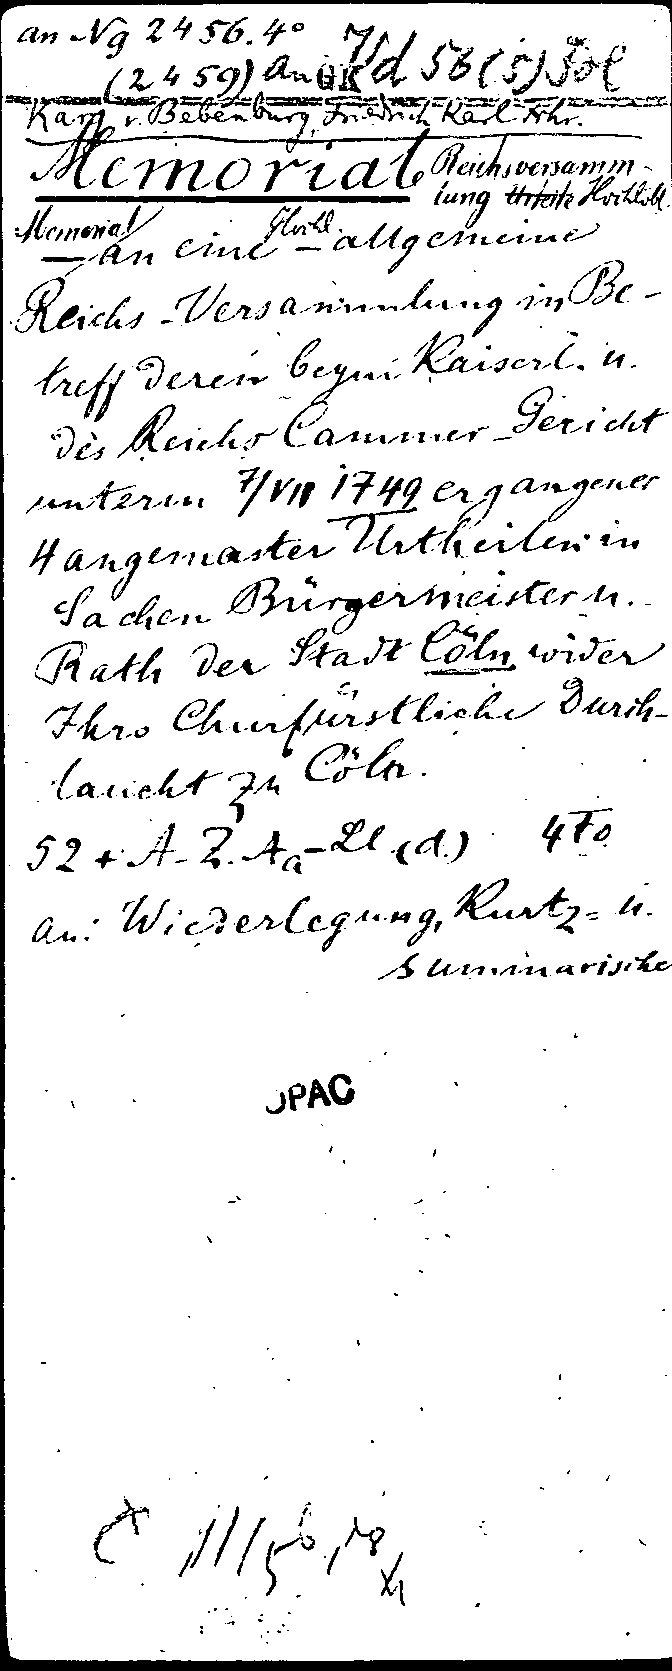 an Ng 2456.4°
(2459) an d 56 (5) Fol
Karg v. Bebenburg, Friedrich Karl Frhr.
Memorial Reichsversamm-
lung Urteile Hochlobl.
Memorial Hochl.
– an eine – allgemeine
Reichs-Versammlung in Be-
treff deren beym Kaiserl. u.
des Reichs Cammer-Gericht
unterm 7/VII 1749 ergangener
4 angemaster Urtheilen in
Sachen Bürgermeister u.
Rath der Stadt Cöln wider
Ihro Churfürstliche Durch-
laucht zu Cöln.
52 + A-Z. Aa-Ll (d.) 4To
an: Wiederlegung, Kurtz- u.
summarische
OPAC